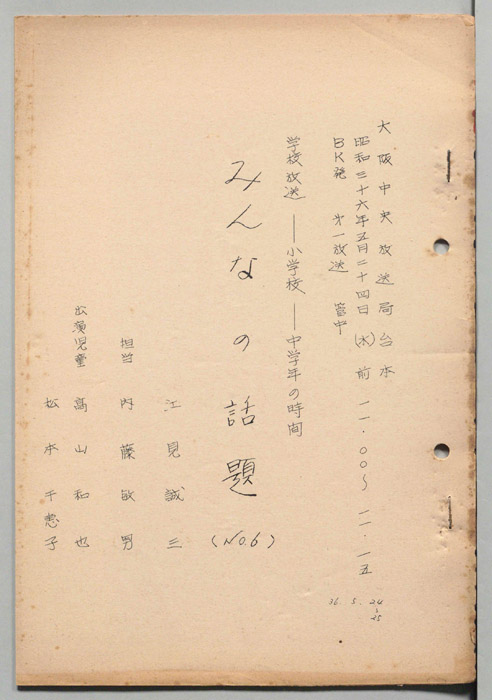 大阪中央放送局台本
昭和三十六年五月二十四日(水)前 一一.〇〇〜一一.一五
BK発 第一放送 管中
学校放送 ―― 小学校 ―― 中学年の時間
みんなの話題 (No.6)
江見誠三
担当 内藤敏男
出演児童 高山和也
松本千恵子
36. 5. 24
25